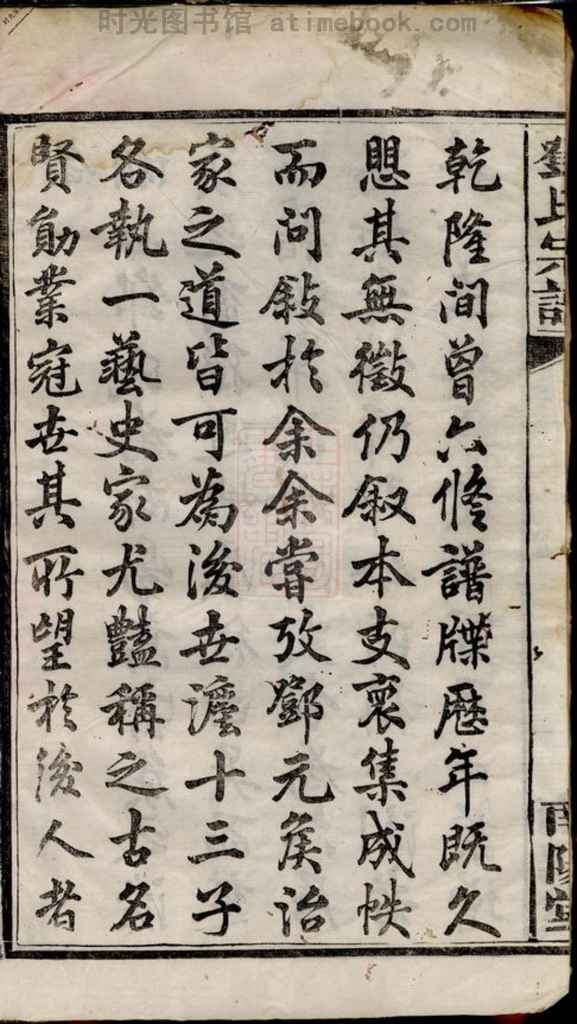 时光图书馆 atimebook.com
鄧氏宗譜
南陽堂
乾隆间曾六修譜牒歷年既久
懇其無徵仍叙本支裒集成帙
而问敍於余余嘗攷鄧元矦治
家之道皆可為後世灋十三子
各執一藝史家尤豔稱之古名
賢勛業冠世其所望於後人者